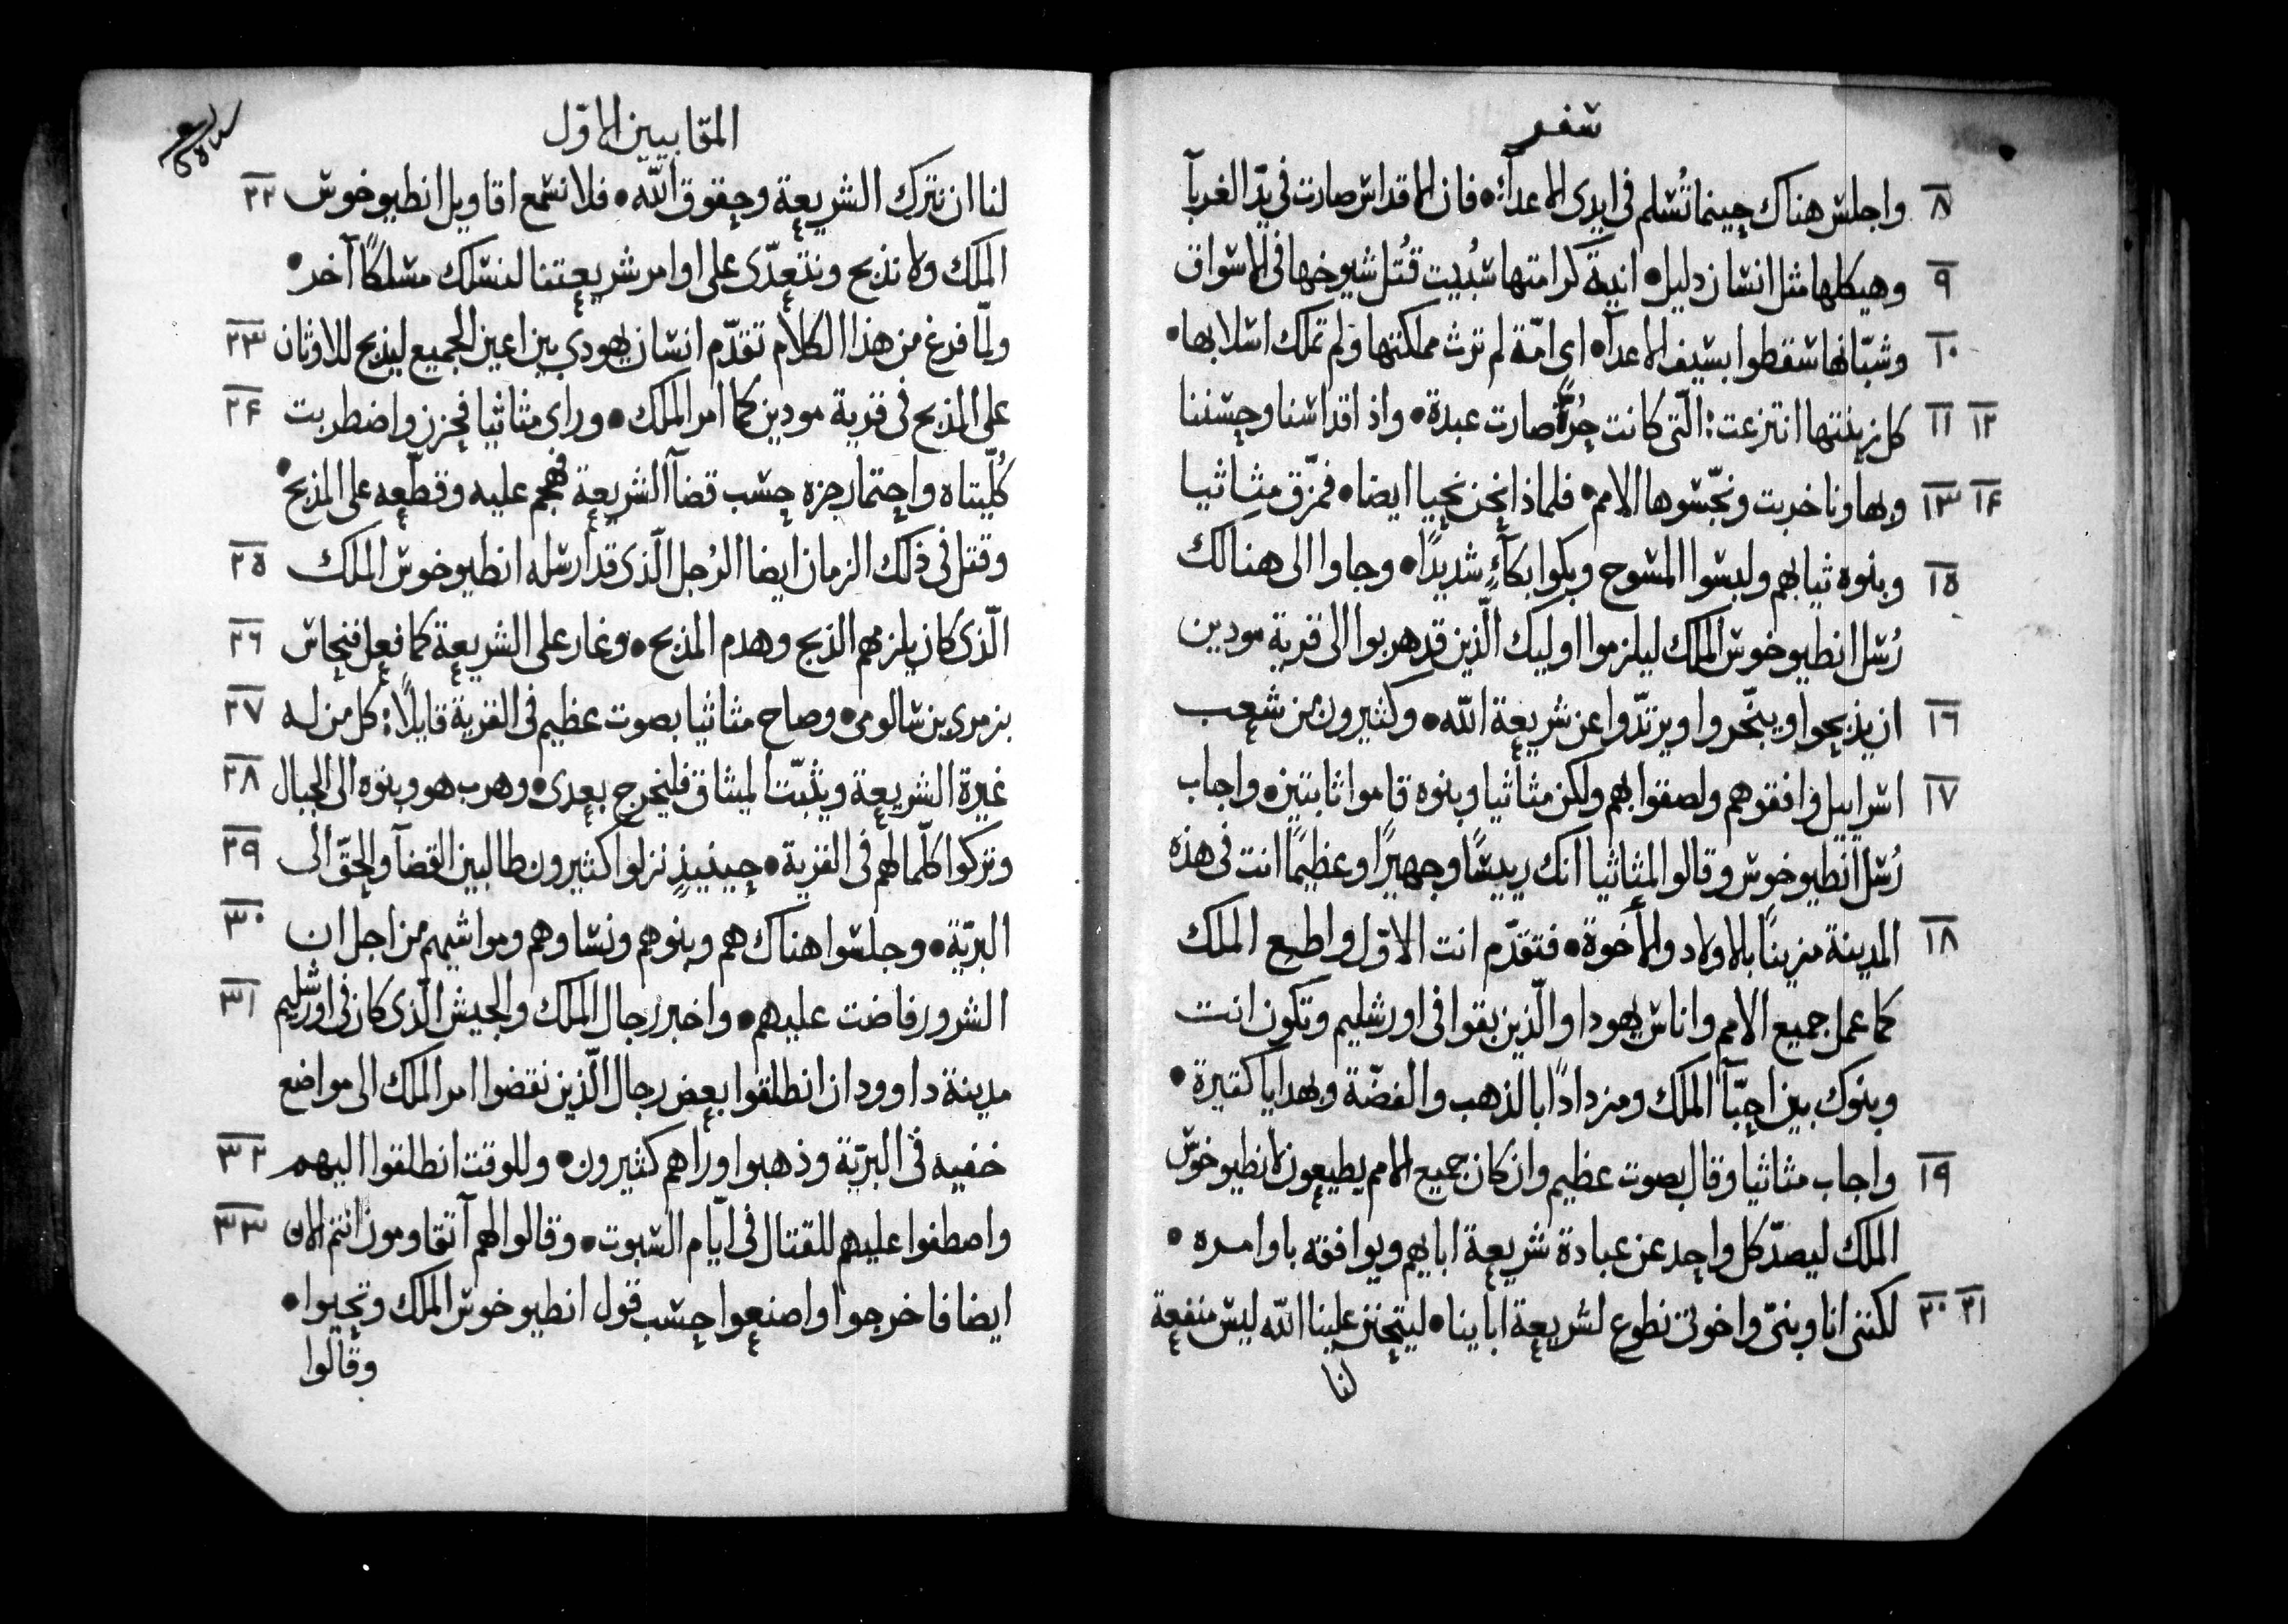 سفر
٨ واجلس هناك حينما تُسلم فى ايدى الاعداء٠ فان الاقداس صارت فى يدّ الغربآ
٩ وهيكلها مثل انسان دليل٠ انية كرامتها سُبيت قُتل شيوخها فى الاسواق
١٠ وشبّانها سقطوا بسيف الاعدآ٠ اى امّة لم ترث مملكتها ولم تملك اسلابها٠
١١ ١٢ كل زينتها انتزعت: الّتى كانت حُرّةً صارت عبدة٠ واذ اقداسنا وحسننا
١٣ ١٤ وبهاونا خربت ونجّسوها الامم٠ فلماذا نحن نحيا ايضا٠ فمزّق مثاثيا
١٥ وبنوه ثيابهم ولبسوا المسوح وبكوا بكآءٍ شديدًا٠ وجاوا الى هنالك
رُسل انطيوخوس الملك ليلزموا اوليك الّذين قد هربوا الى قرية مودين
١٦ ان يذبحوا ويبخّروا ويرتدّوا عن شريعة الله٠ وكثيرون من شعب
١٧ اسراييل وافقوهم ولصقوا بهم ولكن مثاثيا وبنوه قاموا ثابتين٠ واجاب
رُسل انطيوخوس وقالوا لمثاثيا انك رييسًا وجهيرًا وعظيمًا انت فى هذه
١٨ المدينة مزينًا بالاولاد والأخوة٠ فتقدّم انت الاوّل واطيع الملك
كما عمل جميع الامم واناس يهودا والّذين بقوا فى اورشليم وتكون انت
وبنوك بين احبّآ الملك ومزدادًا بالذهب والفضّة وبهدايا كثيرة٠
١٩ واجاب مثاثيا وقال بصوت عظيم وان كان جميع الامم يطيعون لانطيوخوس
الملك ليصدّ كل واحد عن عبادة شريعة ابايهم ويوافقه باوامره٠
٢٠ ٢١ لكننى انا وبنىّ واخوتى نطوع لشريعة اباينا٠ ليتحنن علينا الله ليس منفعة
لنا
المقابيين الاوّل
لنا ان نترك الشريعة وحقوق الله٠ فلا نسمع اقاويل انطيوخوس ٢٢
الملك ولا نذبح ونتعدّى على اوامر شريعتنا لنسلك مسلكًا آخر٠
ولمّا فرغ من هذا الكلام تقدّم انسان يهودي بين اعين الجميع ليذبح للاوثان ٢٣
على المذبح فى قرية مودين كما امر الملك٠ وراى مثاثيا فحزن واضطربت ٢٤
كُلّيتاه واحتما رجزه حسب قضآ الشريعة فهجم عليه وقطّعه على المذبح٠
وقتل فى ذلك الزمان ايضا الرُجل الّذى قد ارسله انطيوخوس الملك ٢٥
الّذى كان يلزمهم الذبح وهدم المذبح٠ وغار على الشريعة كما فعل فنحاس ٢٦
بزمرى بن شالومى٠ وصاح مثاثيا بصوت عظيم فى القرية قايلًا: كل من له ٢٧
غيرة الشريعة ويثبّت الميثاق فليخرج بعدى٠ وهرب هو وبنوه الى الجبال ٢٨
وتركوا كلّما لهم فى القرية٠ حينيذٍ نزلوا كثيرون طالبين القضآ والحقّ الى ٢٩
البرّية٠ وجلسوا هناك هم وبنوهم ونساوهم ومواشيهم من اجل ان ٣٠
الشرور فاضت عليهم٠ واخبر رجال الملك والجيش الّذى كان فى اورشليم ٣١
مدينة داوود ان انطلقوا بعض رجال الّذين نقضوا امر الملك الى مواضع
خفيه فى البرّية وذهبوا وراهم كثيرون٠ وللوقت انطلقوا اليهم ٣٢
واصطفوا عليهم للقتال فى ايّام السبوت٠ وقالوا لهم آتقاومون انتم الان ٣٣
ايضا فاخرجوا واصنعوا حسب قول انطيوخوس الملك وتحيوا٠
وقالوا